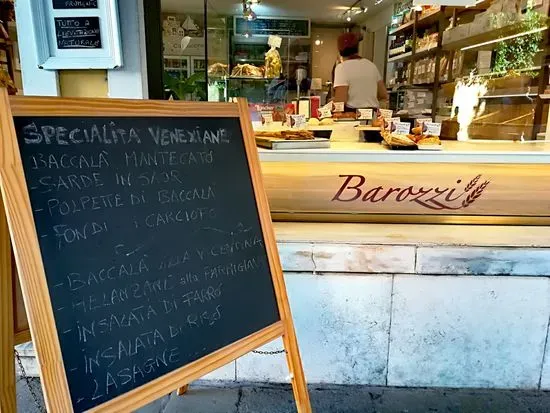 TUTTO
LIEVITAZIONE
NATURALE
SPECIALITA VENEXIANE
BACCALÀ MANTECATO
- SARDE IN SAOR
- POLPETTE DI BACCALÀ
- FONDI DI CARCIOFO
- BACCALÀ ALLA VICENTINA
- MELANZANE alla PARMIGIANA
- INSALATA DI FARRO
- INSALATA DI RISO
- LASAGNE ...
Barozzi